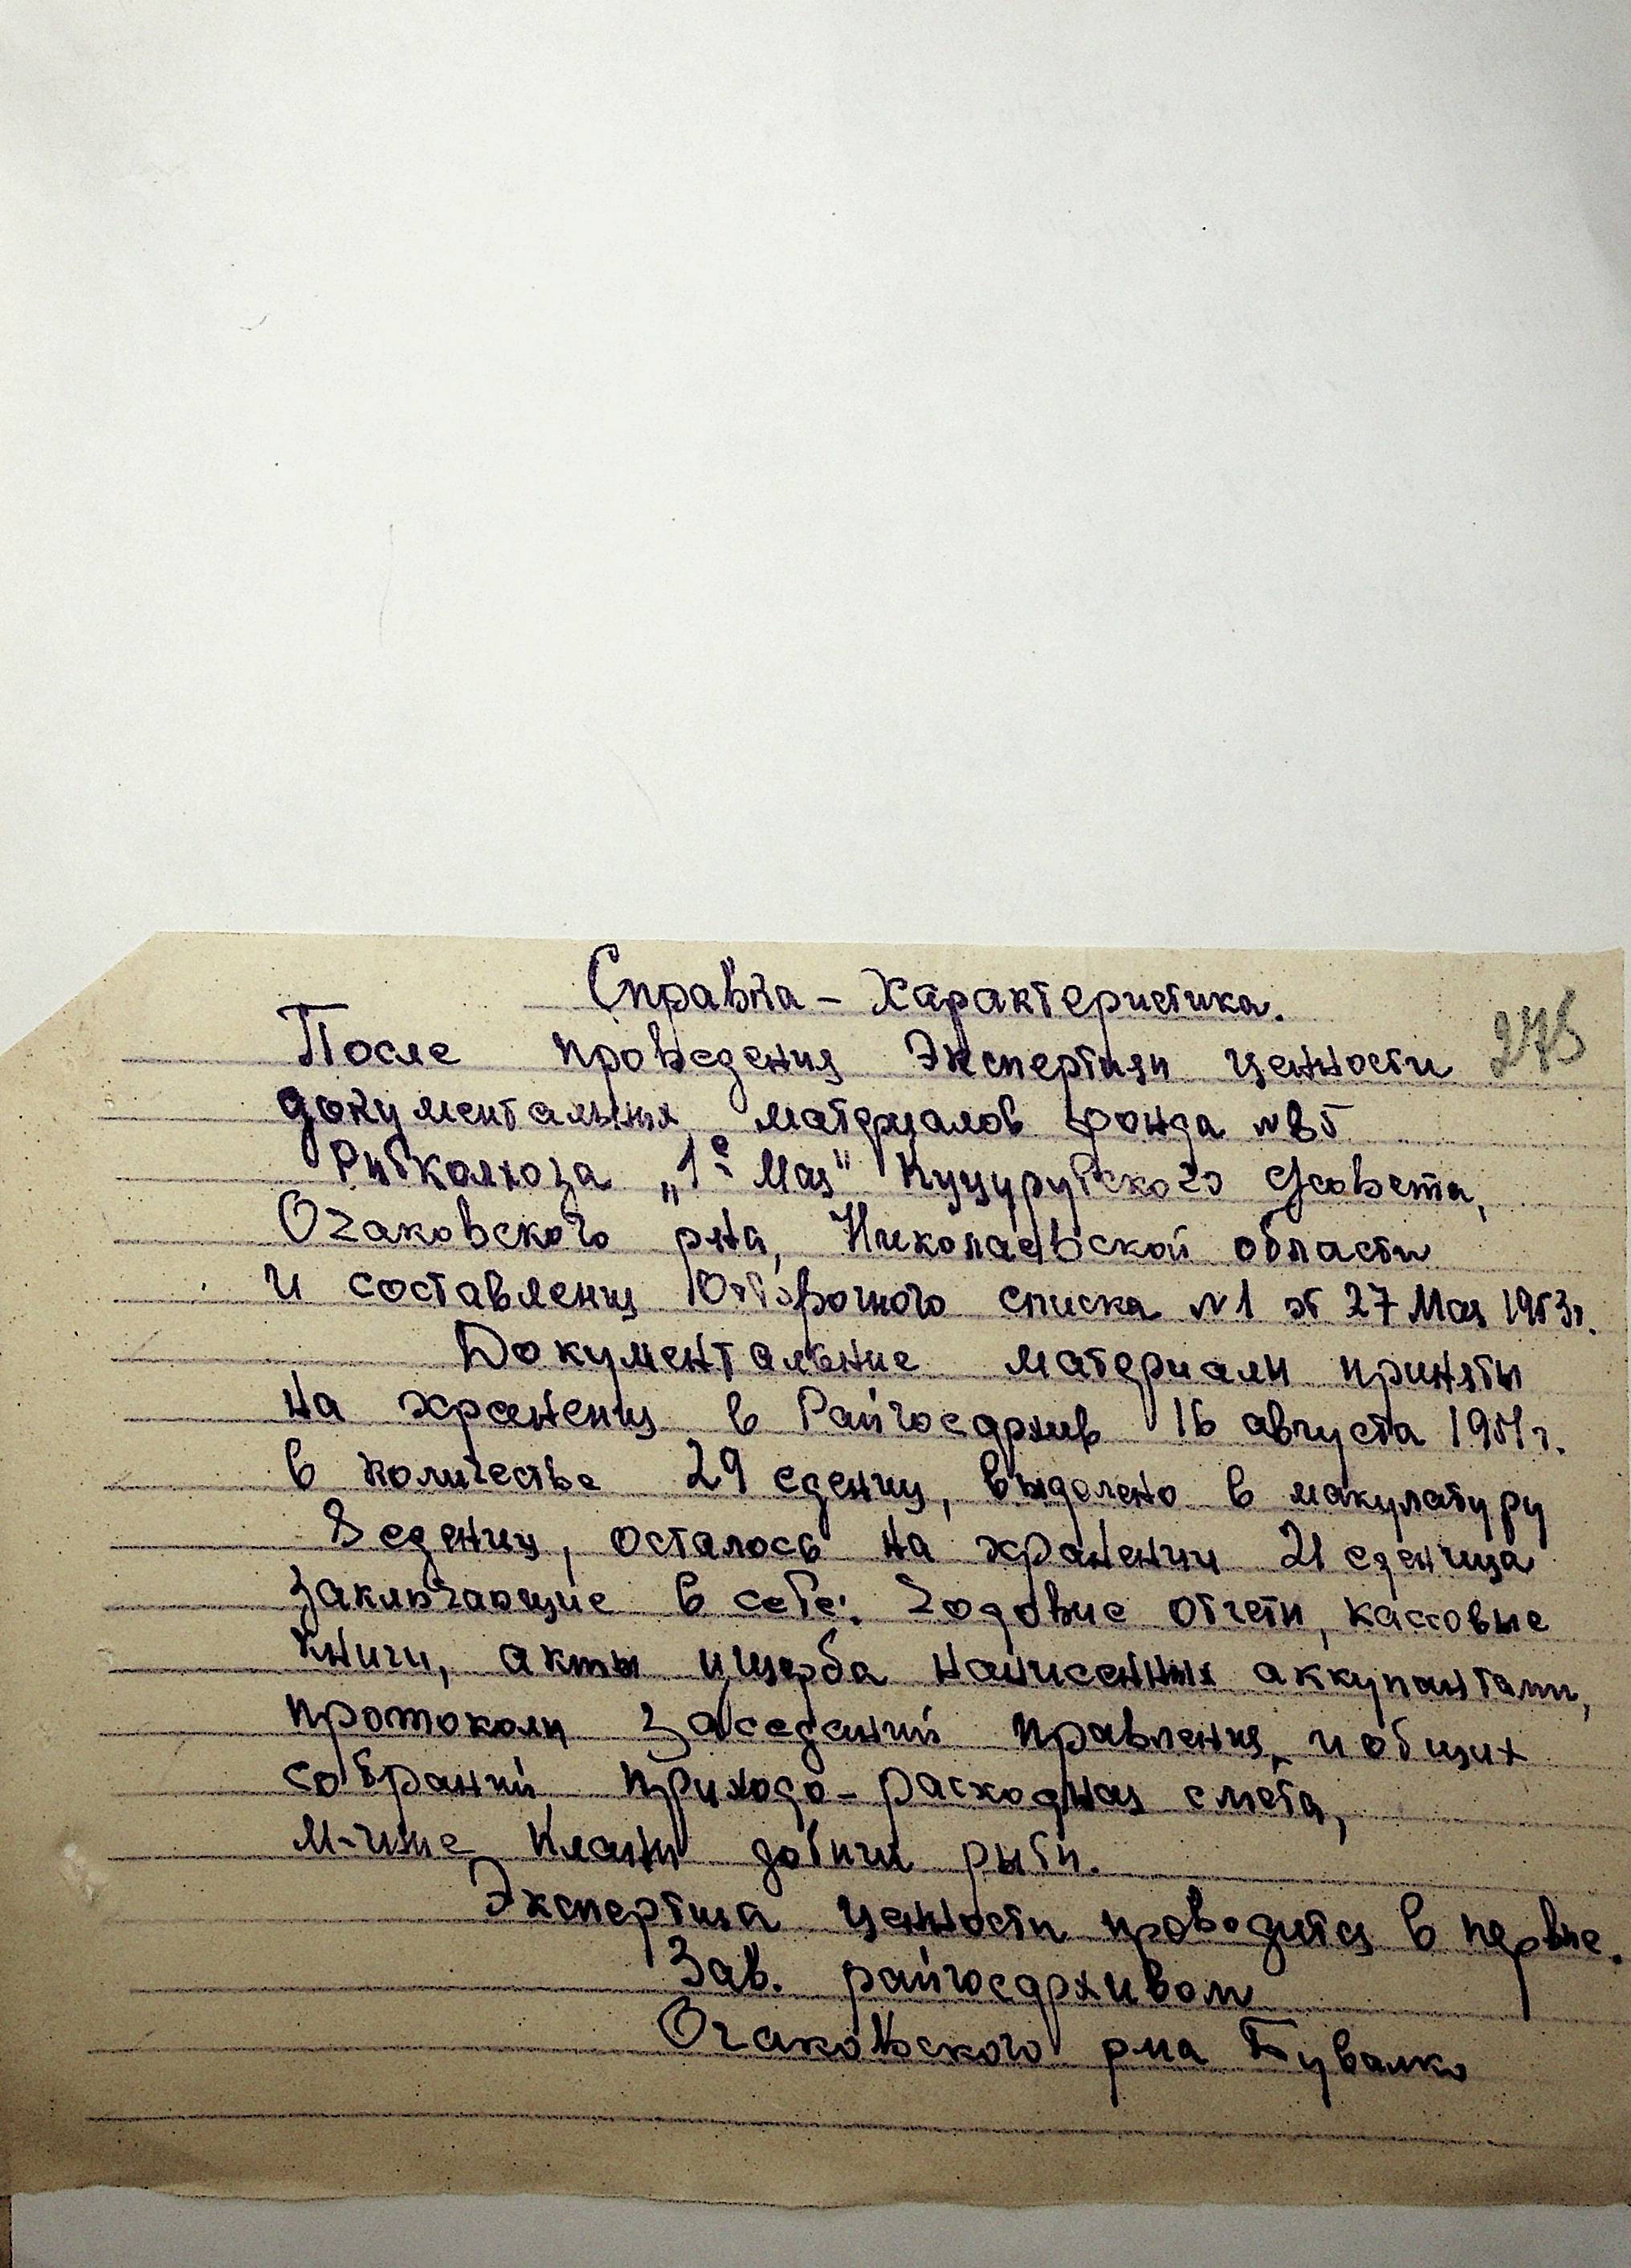 Справка – Характеристика.
275
После проведения Экспертизи ценности
документальних материалов фонда №85
Рибколхоза „1е Мая" Куцурубского с/совета,
Очаковского р-на, Николаевской области
и составления Отборочного списка №1 от 27 Мая 1953г.
Документальние материали приняти
на хранения в Райгосархив 16 августа 1951г.
в количестве 29 едениц, выделено в макулатуру
8 едениц, осталось на хранении 21 еденица
заключающие в себе: Годовие отчети, кассовые
книги, акты ущерба нанисенных аккупантами,
протоколи заседаний правления и общих
собраний, приходо-расходная смета,
м-чние плани добичи рыби.
Экспертиза ценности проводится в первые.
Зав. райгосархивом
Очаковского р-на Бувалко